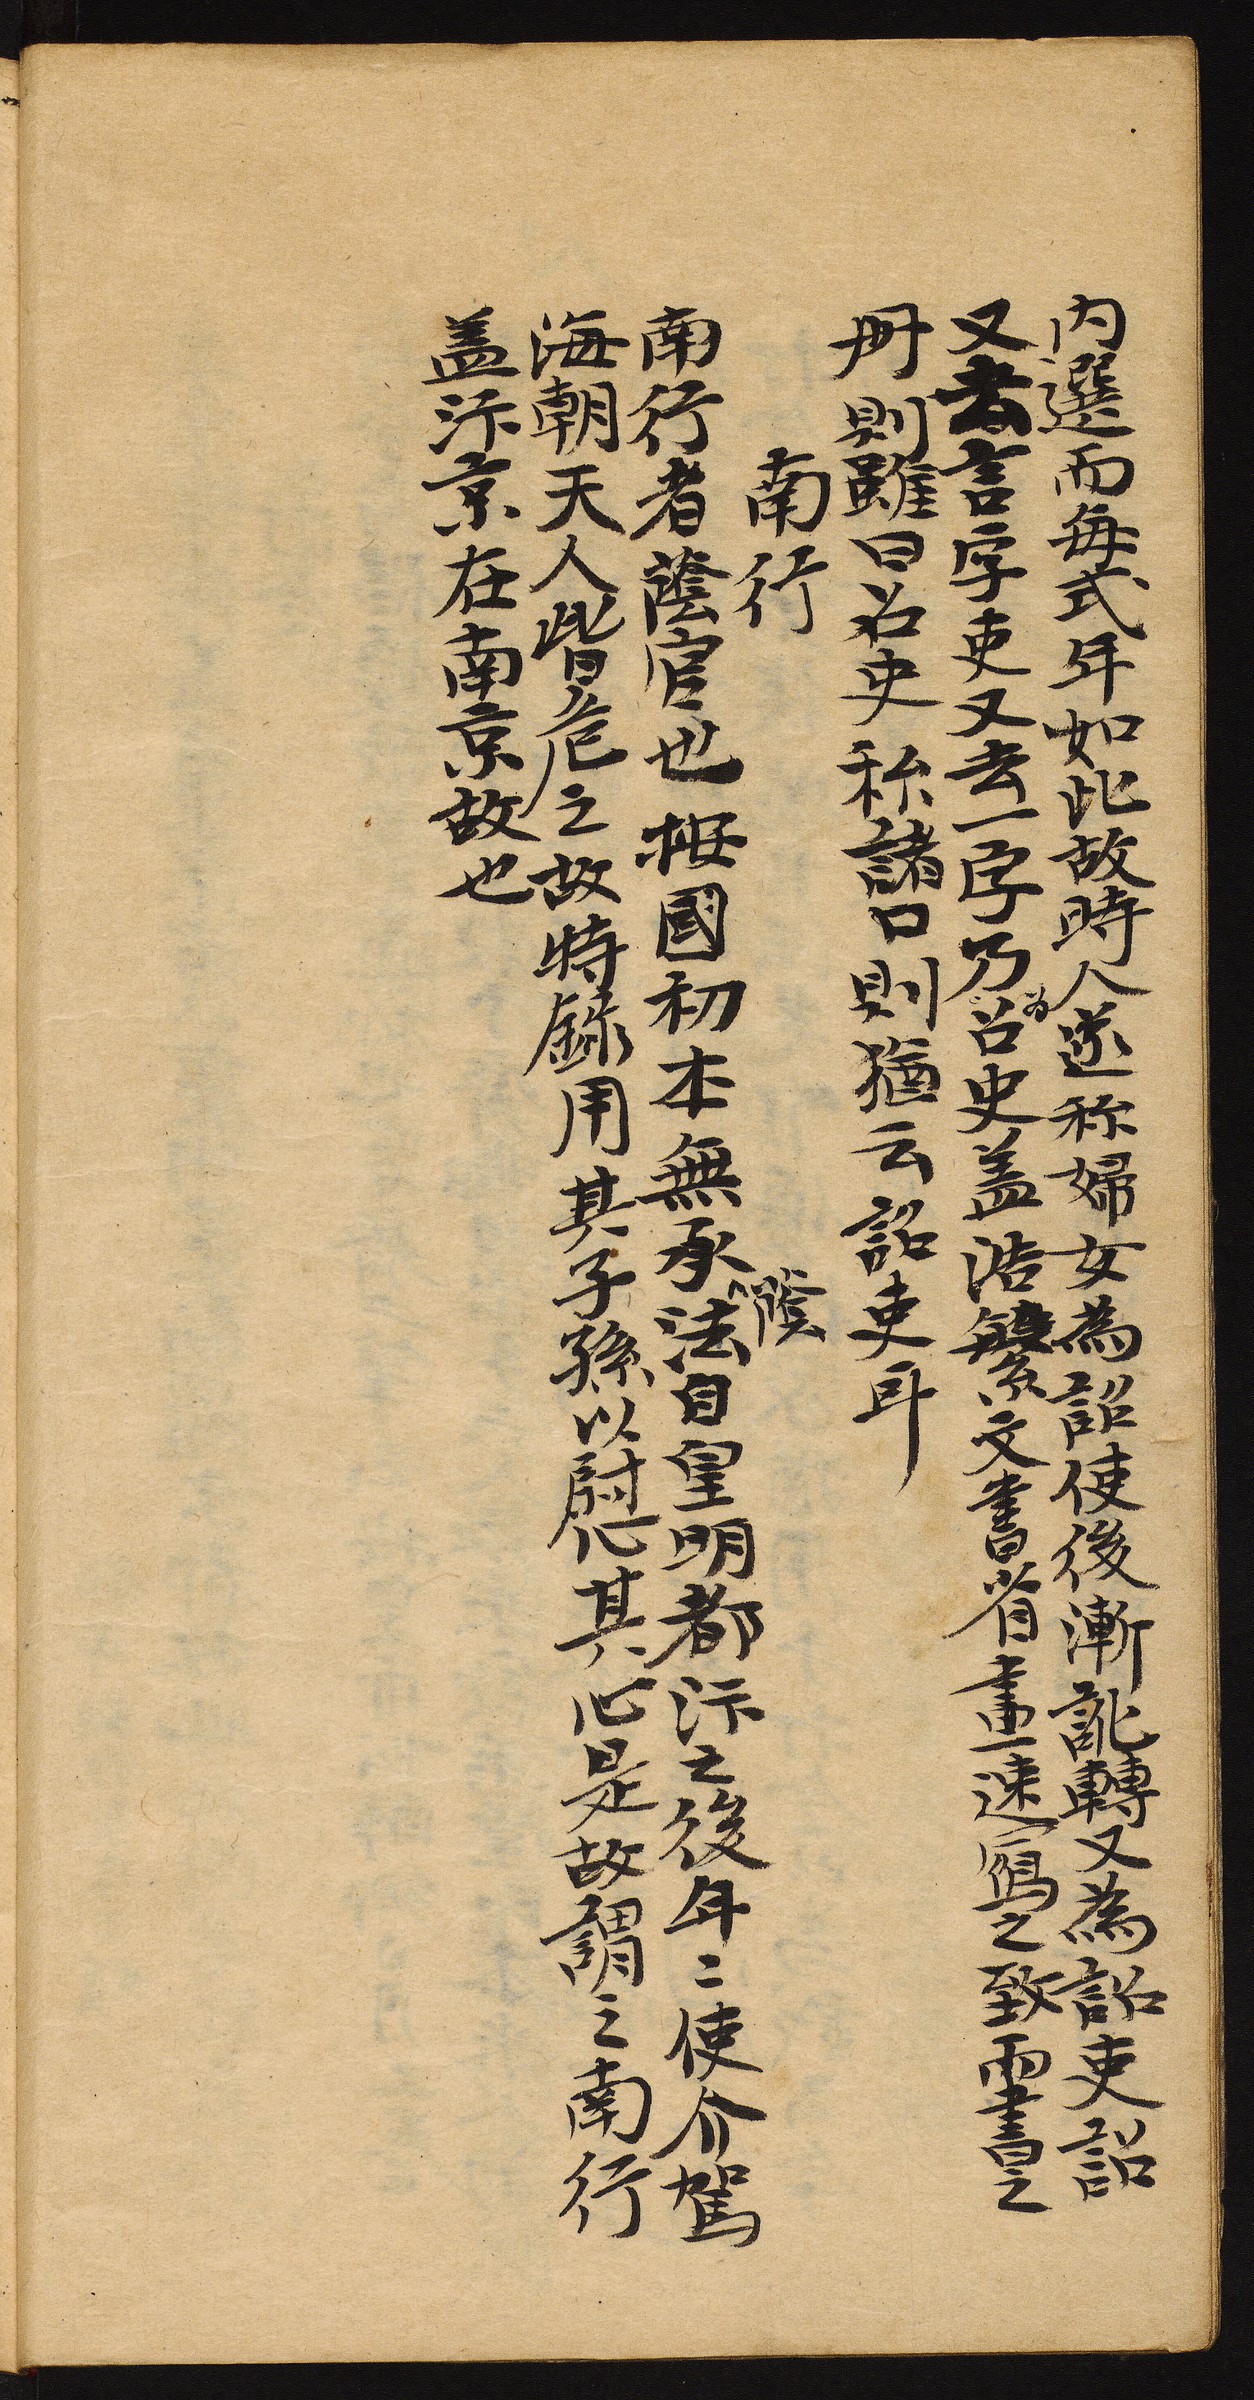 内選而每式年如此故時人遂称婦女為詔使後漸訛轉又為詔吏詔
又去言字吏又去一字乃為召史盖浩繁文書省畫速寫之致而書之
冊則雖曰召史称諸口則猶云詔吏耳
南行
南行者蔭官也按國初本無承蔭法自皇明都汴之後年二使介駕
海朝天人皆危之故特錄用其子孫以慰其心是故謂之南行
盖汴京在南京故也